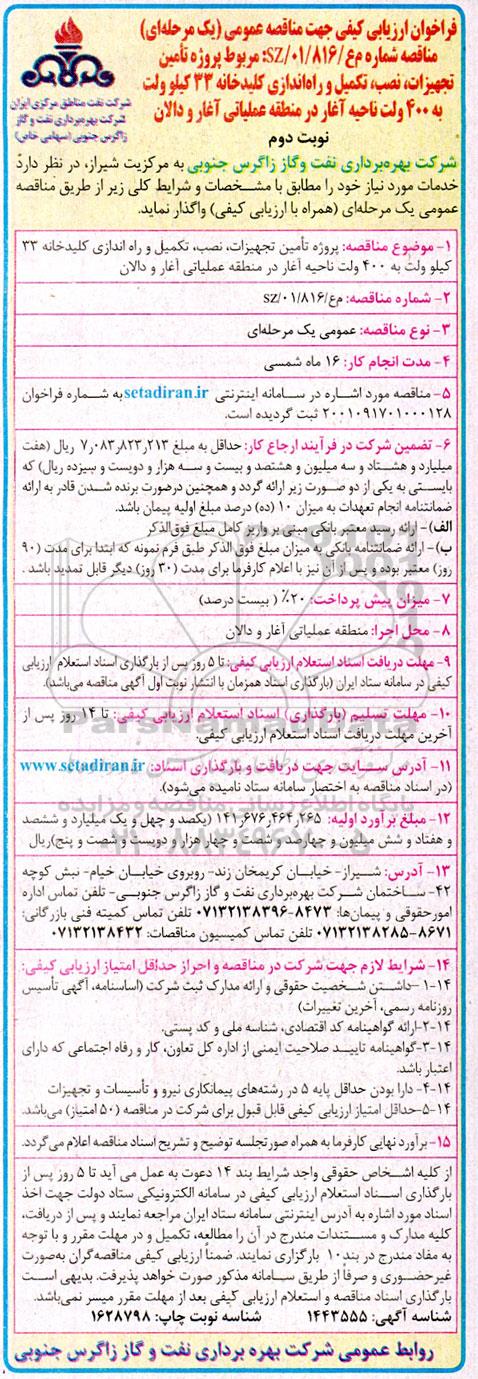 فراخوان ارزیابی کیفی جهت مناقصه عمومی (یک مرحله‌ای)
مناقصه شماره م‌ع/SZ/۰۱/۸۱۶: مربوط پروژه تأمین
تجهیزات، نصب، تکمیل و راه‌اندازی کلیدخانه ۳۳ کیلو ولت
به ۴۰۰ ولت ناحیه آغار در منطقه عملیاتی آغار و دالان
شرکت نفت مناطق مرکزی ایران
شرکت بهره‌برداری نفت و گاز
زاگرس جنوبی (سهامی خاص)
نوبت دوم
شرکت بهره‌برداری نفت وگاز زاگرس جنوبی به مرکزیت شیراز، در نظر دارد
خدمات مورد نیاز خود را مطابق با مشخصات و شرایط کلی زیر از طریق مناقصه
عمومی یک مرحله‌ای (همراه با ارزیابی کیفی) واگذار نماید.
۱- موضوع مناقصه: پروژه تأمین تجهیزات، نصب، تکمیل و راه اندازی کلیدخانه ۳۳
کیلو ولت به ۴۰۰ ولت ناحیه آغار در منطقه عملیاتی آغار و دالان
۲- شماره مناقصه: م‌ع/SZ/۰۱/۸۱۶
۳- نوع مناقصه: عمومی یک مرحله‌ای
۴- مدت انجام کار: ۱۶ ماه شمسی
۵- مناقصه مورد اشاره در سامانه اینترنتی setadiran.ir به شماره فراخوان
۲۰۰۱۰۹۱۷۰۱۰۰۰۱۲۸ ثبت گردیده است.
۶- تضمین شرکت در فرآیند ارجاع کار: حداقل به مبلغ ۷٫۰۸۳٫۸۲۳٫۲۱۳ ریال (هفت
میلیارد و هشتاد و سه میلیون و هشتصد و بیست و سه هزار و دویست و سیزده ریال) که
بایستی به یکی از دو صورت زیر ارائه گردد و همچنین درصورت برنده شدن قادر به ارائه
ضمانتنامه انجام تعهدات به میزان ۱۰ (ده) درصد مبلغ اولیه پیمان باشد.
الف)- ارائه رسید معتبر بانکی مبنی بر واریز کامل مبلغ فوق‌الذکر
ب)- ارائه ضمانتنامه بانکی به میزان مبلغ فوق الذکر طبق فرم نمونه که ابتدا برای مدت (۹۰
روز) معتبر بوده و پس از آن نیز با اعلام کارفرما برای مدت (۳۰ روز) دیگر قابل تمدید باشد.
۷- میزان پیش پرداخت: ۲۰٪ ( بیست درصد)
۸- محل اجرا: منطقه عملیاتی آغار و دالان
۹- مهلت دریافت اسناد استعلام ارزیابی کیفی: تا ۵ روز پس از بارگذاری اسناد استعلام ارزیابی
کیفی در سامانه ستاد ایران (بارگذاری اسناد همزمان با انتشار نوبت اول آگهی مناقصه می‌باشد).
۱۰- مهلت تسلیم (بارگذاری) اسناد استعلام ارزیابی کیفی: تا ۱۴ روز پس از
آخرین مهلت دریافت اسناد استعلام ارزیابی کیفی.
۱۱- آدرس سایت جهت دریافت و بارگذاری اسناد: www.setadiran.ir
(در اسناد مناقصه به اختصار سامانه ستاد نامیده می‌شود).
۱۲- مبلغ برآورد اولیه: ۱۴۱٫۶۷۶٫۴۶۴٫۲۶۵ (یکصد و چهل و یک میلیارد و ششصد
و هفتاد و شش میلیون و چهارصد و شصت و چهار هزار و دویست و شصت و پنج)ریال
۱۳- آدرس: شیراز- خیابان کریمخان زند- روبروی خیابان خیام- نبش کوچه
۴۲- ساختمان شرکت بهره‌برداری نفت و گاز زاگرس جنوبی- تلفن تماس اداره
امورحقوقی و پیمان‌ها: ۸۴۷۳-۰۷۱۳۲۱۳۸۳۹۶ تلفن تماس کمیته فنی بازرگانی:
۸۶۷۱-۰۷۱۳۲۱۳۸۲۸۵ تلفن تماس کمیسیون مناقصات: ۰۷۱۳۲۱۳۸۴۳۲
۱۴- شرایط لازم جهت شرکت در مناقصه و احراز حداقل امتیاز ارزیابی کیفی:
۱۴-۱ -داشتن شخصیت حقوقی و ارائه مدارک ثبت شرکت (اساسنامه، آگهی تأسیس
روزنامه رسمی، آخرین تغییرات)
۱۴-۲-ارائه گواهینامه کد اقتصادی، شناسه ملی و کد پستی.
۱۴-۳-گواهینامه تایید صلاحیت ایمنی از اداره کل تعاون، کار و رفاه اجتماعی که دارای
اعتبار باشد.
۱۴-۴- دارا بودن حداقل پایه ۵ در رشته‌های پیمانکاری نیرو و تأسیسات و تجهیزات
۱۴-۵-حداقل امتیاز ارزیابی کیفی قابل قبول برای شرکت در مناقصه (۵۰ امتیاز) می‌باشد.
۱۵- برآورد نهایی کارفرما به همراه صورتجلسه توضیح و تشریح اسناد مناقصه اعلام می‌گردد.
از کلیه اشخاص حقوقی واجد شرایط بند ۱۴ دعوت به عمل می آید تا ۵ روز پس از
بارگذاری اسناد استعلام ارزیابی کیفی در سامانه الکترونیکی ستاد دولت جهت اخذ
اسناد مورد اشاره به آدرس اینترنتی سامانه ستاد ایران مراجعه نمایند و پس از دریافت،
کلیه مدارک و مستندات مندرج در آن را مطالعه، تکمیل و در مهلت مقرر و با توجه
به مفاد مندرج در بند ۱۰ بارگزاری نمایند. ضمناً ارزیابی کیفی مناقصه‌گران به‌صورت
غیرحضوری و صرفاً از طریق سامانه مذکور صورت خواهد پذیرفت. بدیهی است
بارگذاری اسناد مناقصه و استعلام ارزیابی کیفی بعد از مهلت مقرر میسر نمی‌باشد.
شناسه آگهی: ۱۴۴۳۵۵۵ شناسه نوبت چاپ: ۱۶۲۸۷۹۸
روابط عمومی شرکت بهره برداری نفت و گاز زاگرس جنوبی